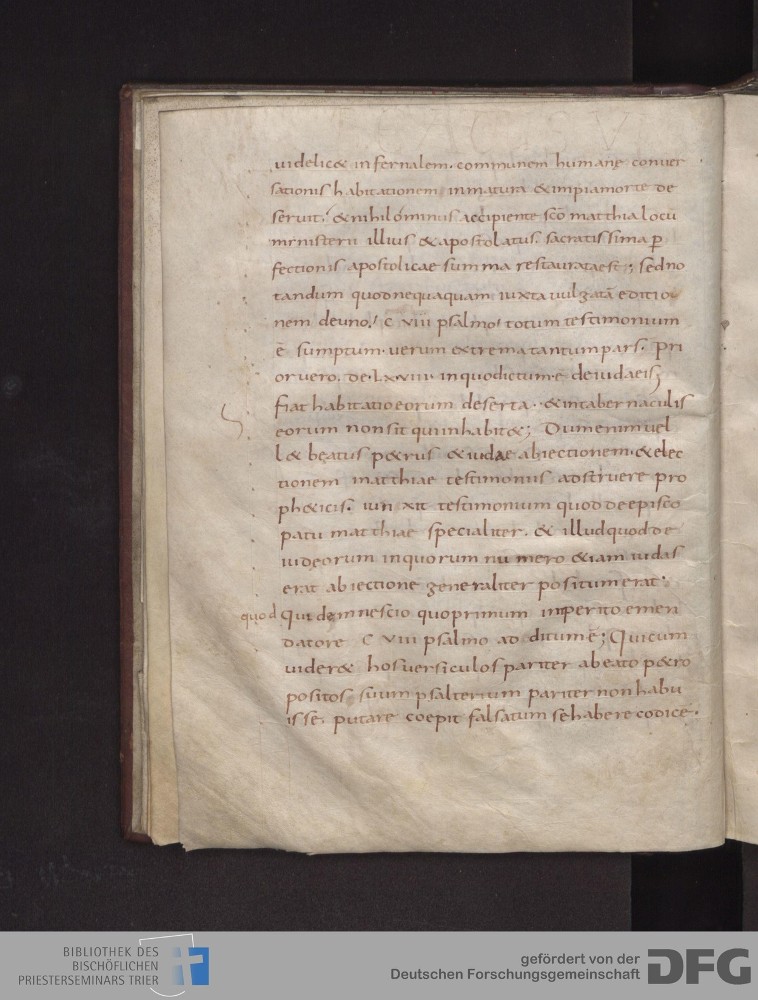 uidelic& infernalem. communem humanę conuer
sationis habitationem inmatura &impiamorte de
seruit; &nihilominus accipiente sc̄o matthia locū
ministerii illius &apostolatus. sacratissima p
fectionis apostolicae summa restaurataest; sedno
tandum quodnequaquam iuxta uulgatā editio
nem deuno. C viii psalmo totum testimonium
ē sumptum. uerum extrematantumpars. pri
or uero. de. Lxviii. inquodictum. ē deiudaeis;
fiat habitatioeorum deserta. &intabernaculis
eorum nonsit quiinhabit&; Dumenim uel
l& beatus p&rus &iudae abiectionem. &elec
tionem matthiae testimoniis adstruere pro
ph&icis. iunxit testimonium quoddeepisco
patu matthiae specialiter. & illudquodde
iudeorum inquorum numero &iam iudas
erat abiectione generaliter positumerat.
quod Quidem nescio quoprimum inperito emen
datore C viii psalmo ad ditumē; Quicum
uider& hosuersiculos pariter abeato p&ro
positos suum psalterium pariter nonhabu
isse. putare coepit falsatum sehabere codice.
BIBLIOTHEK DES
BISCHÖFLICHEN
PRIESTERSEMINARS TRIER
gefördert von der
Deutschen Forschungsgemeinschaft
DFG